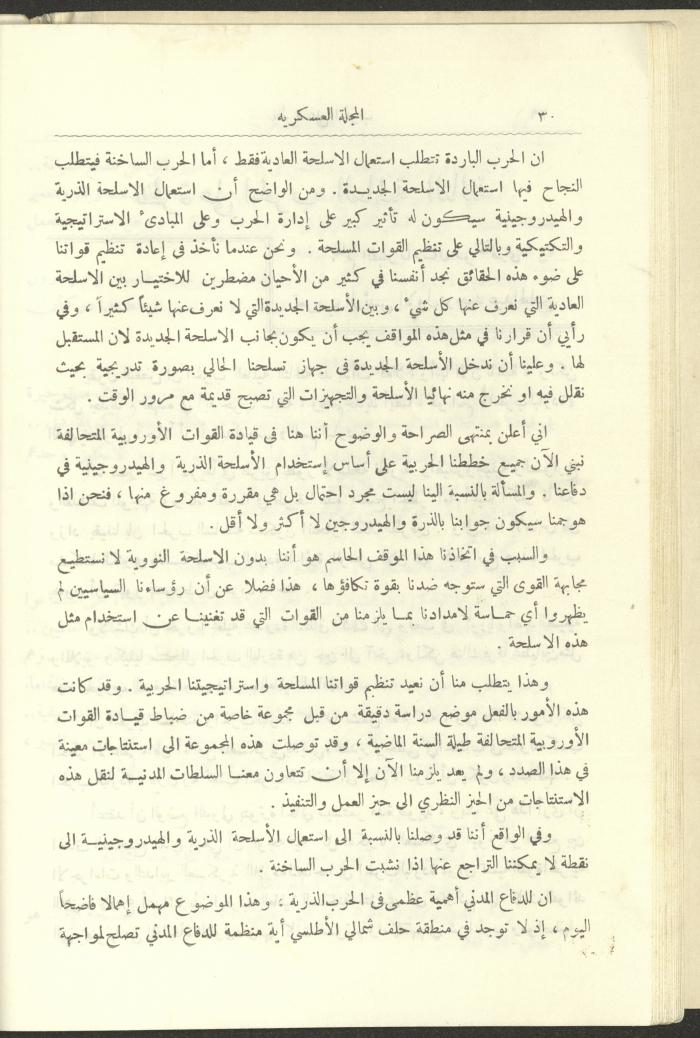 ٣٠
المجلة العسكريه
ان الحرب الباردة تتطلب استعمال الاسلحة العادية فقط ، أما الحرب الساخنة فيتطلب
النجاح فيها استعمال الاسلحة الجديدة . ومن الواضح أن استعمال الاسلحة الذرية
والهيدروجينية سيكون له تأثير كبير على إدارة الحرب وعلى المبادئ الاستراتيجية
والتكتيكية وبالتالي على تنظيم القوات المسلحة . ونحن عندما نأخذ في إعادة تنظيم قواتنا
على ضوء هذه الحقائق نجد أنفسنا في كثير من الأحيان مضطرين للاختيار بين الاسلحة
العادية التي نعرف عنها كل شيء ، وبين الأسلحة الجديدة التي لا نعرف عنها شيئاً كثيراً ، وفي
رأيي أن قرارنا في مثل هذه المواقف يجب أن يكون بجانب الاسلحة الجديدة لان المستقبل
لها . وعلينا أن ندخل الأسلحة الجديدة في جهاز تسلحنا الحالي بصورة تدريجية بحيث
نقلل فيه او نخرج منه نهائيا الأسلحة والتجهيزات التي تصبح قديمة مع مرور الوقت .
اني أعلن بمنتهى الصراحة والوضوح أننا هنا في قيادة القوات الأوروبية المتحالفة
نبني الآن جميع خططنا الحربية على أساس إستخدام الأسلحة الذرية والهيدروجينية في
دفاعنا . والمسألة بالنسبة الينا ليست مجرد احتمال بل هي مقررة ومفروغ منها ، فنحن اذا
هوجمنا سيكون جوابنا بالذرة والهيدروجين لا أكثر ولا أقل .
والسبب في اتخاذنا هذا الموقف الحاسم هو أننا بدون الاسلحة النووية لا نستطيع
مجابهة القوى التي ستوجه ضدنا بقوة تكافؤها ، هذا فضلا عن أن رؤساءنا السياسيين لم
يظهروا أي حماسة لامدادنا بما يلزمنا من القوات التي قد تغنينا عن استخدام مثل
هذه الاسلحة .
وهذا يتطلب منا أن نعيد تنظيم قواتنا المسلحة واستراتيجيتنا الحربية . وقد كانت
هذه الأمور بالفعل موضع دراسة دقيقة من قبل مجموعة خاصة من ضباط قيادة القوات
الأوروبية المتحالفة طيلة السنة الماضية ، وقد توصلت هذه المجموعة الى استنتاجات معينة
في هذا الصدد ، ولم يعد يلزمنا الآن إلا أن تتعاون معنا السلطات المدنية لنقل هذه
الاستنتاجات من الحيز النظري الى حيز العمل والتنفيذ .
وفي الواقع أننا قد وصلنا بالنسبة الى استعمال الأسلحة الذرية والهيدروجينية الى
نقطة لا يمكننا التراجع عنها اذا نشبت الحرب الساخنة .
ان للدفاع المدني أهمية عظمى في الحرب الذرية ، وهذا الموضوع مهمل إهمالا فاضحاً
اليوم ، إذ لا توجد في منطقة حلف شمالي الأطلسي أية منظمة للدفاع المدني تصلح لمواجهة